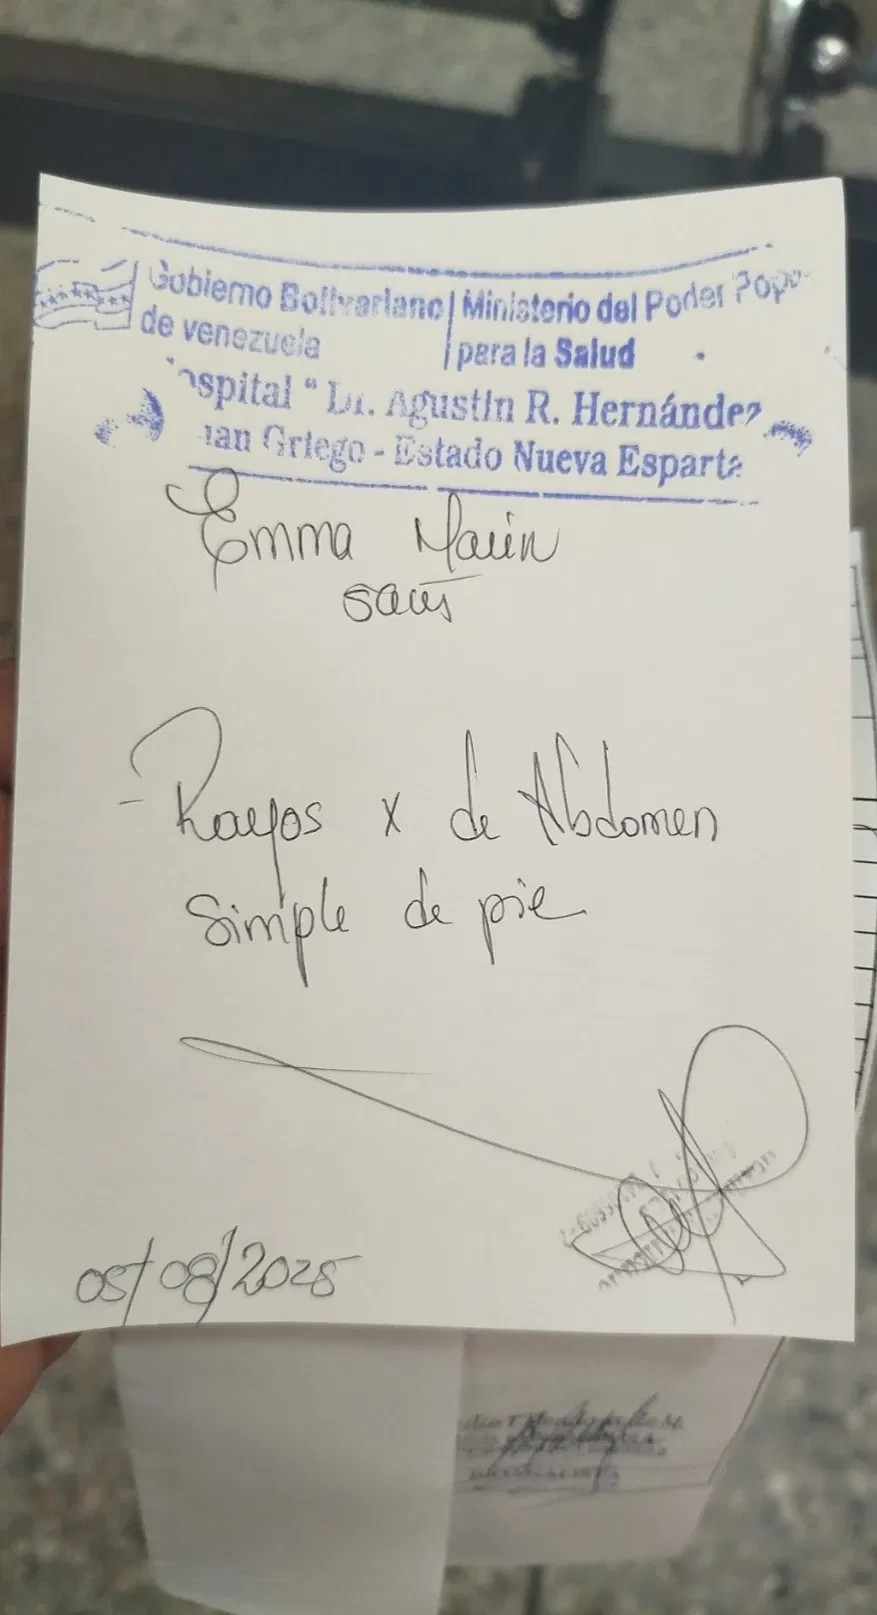 Gobierno Bolivariano | Ministerio del Poder Popu
de venezuela | para la Salud
ospital "Dr. Agustin R. Hernández
uan Griego - Estado Nueva Esparta
Emma Marin
- Rayos x de Abdomen
Simple de pie
05/08/2025